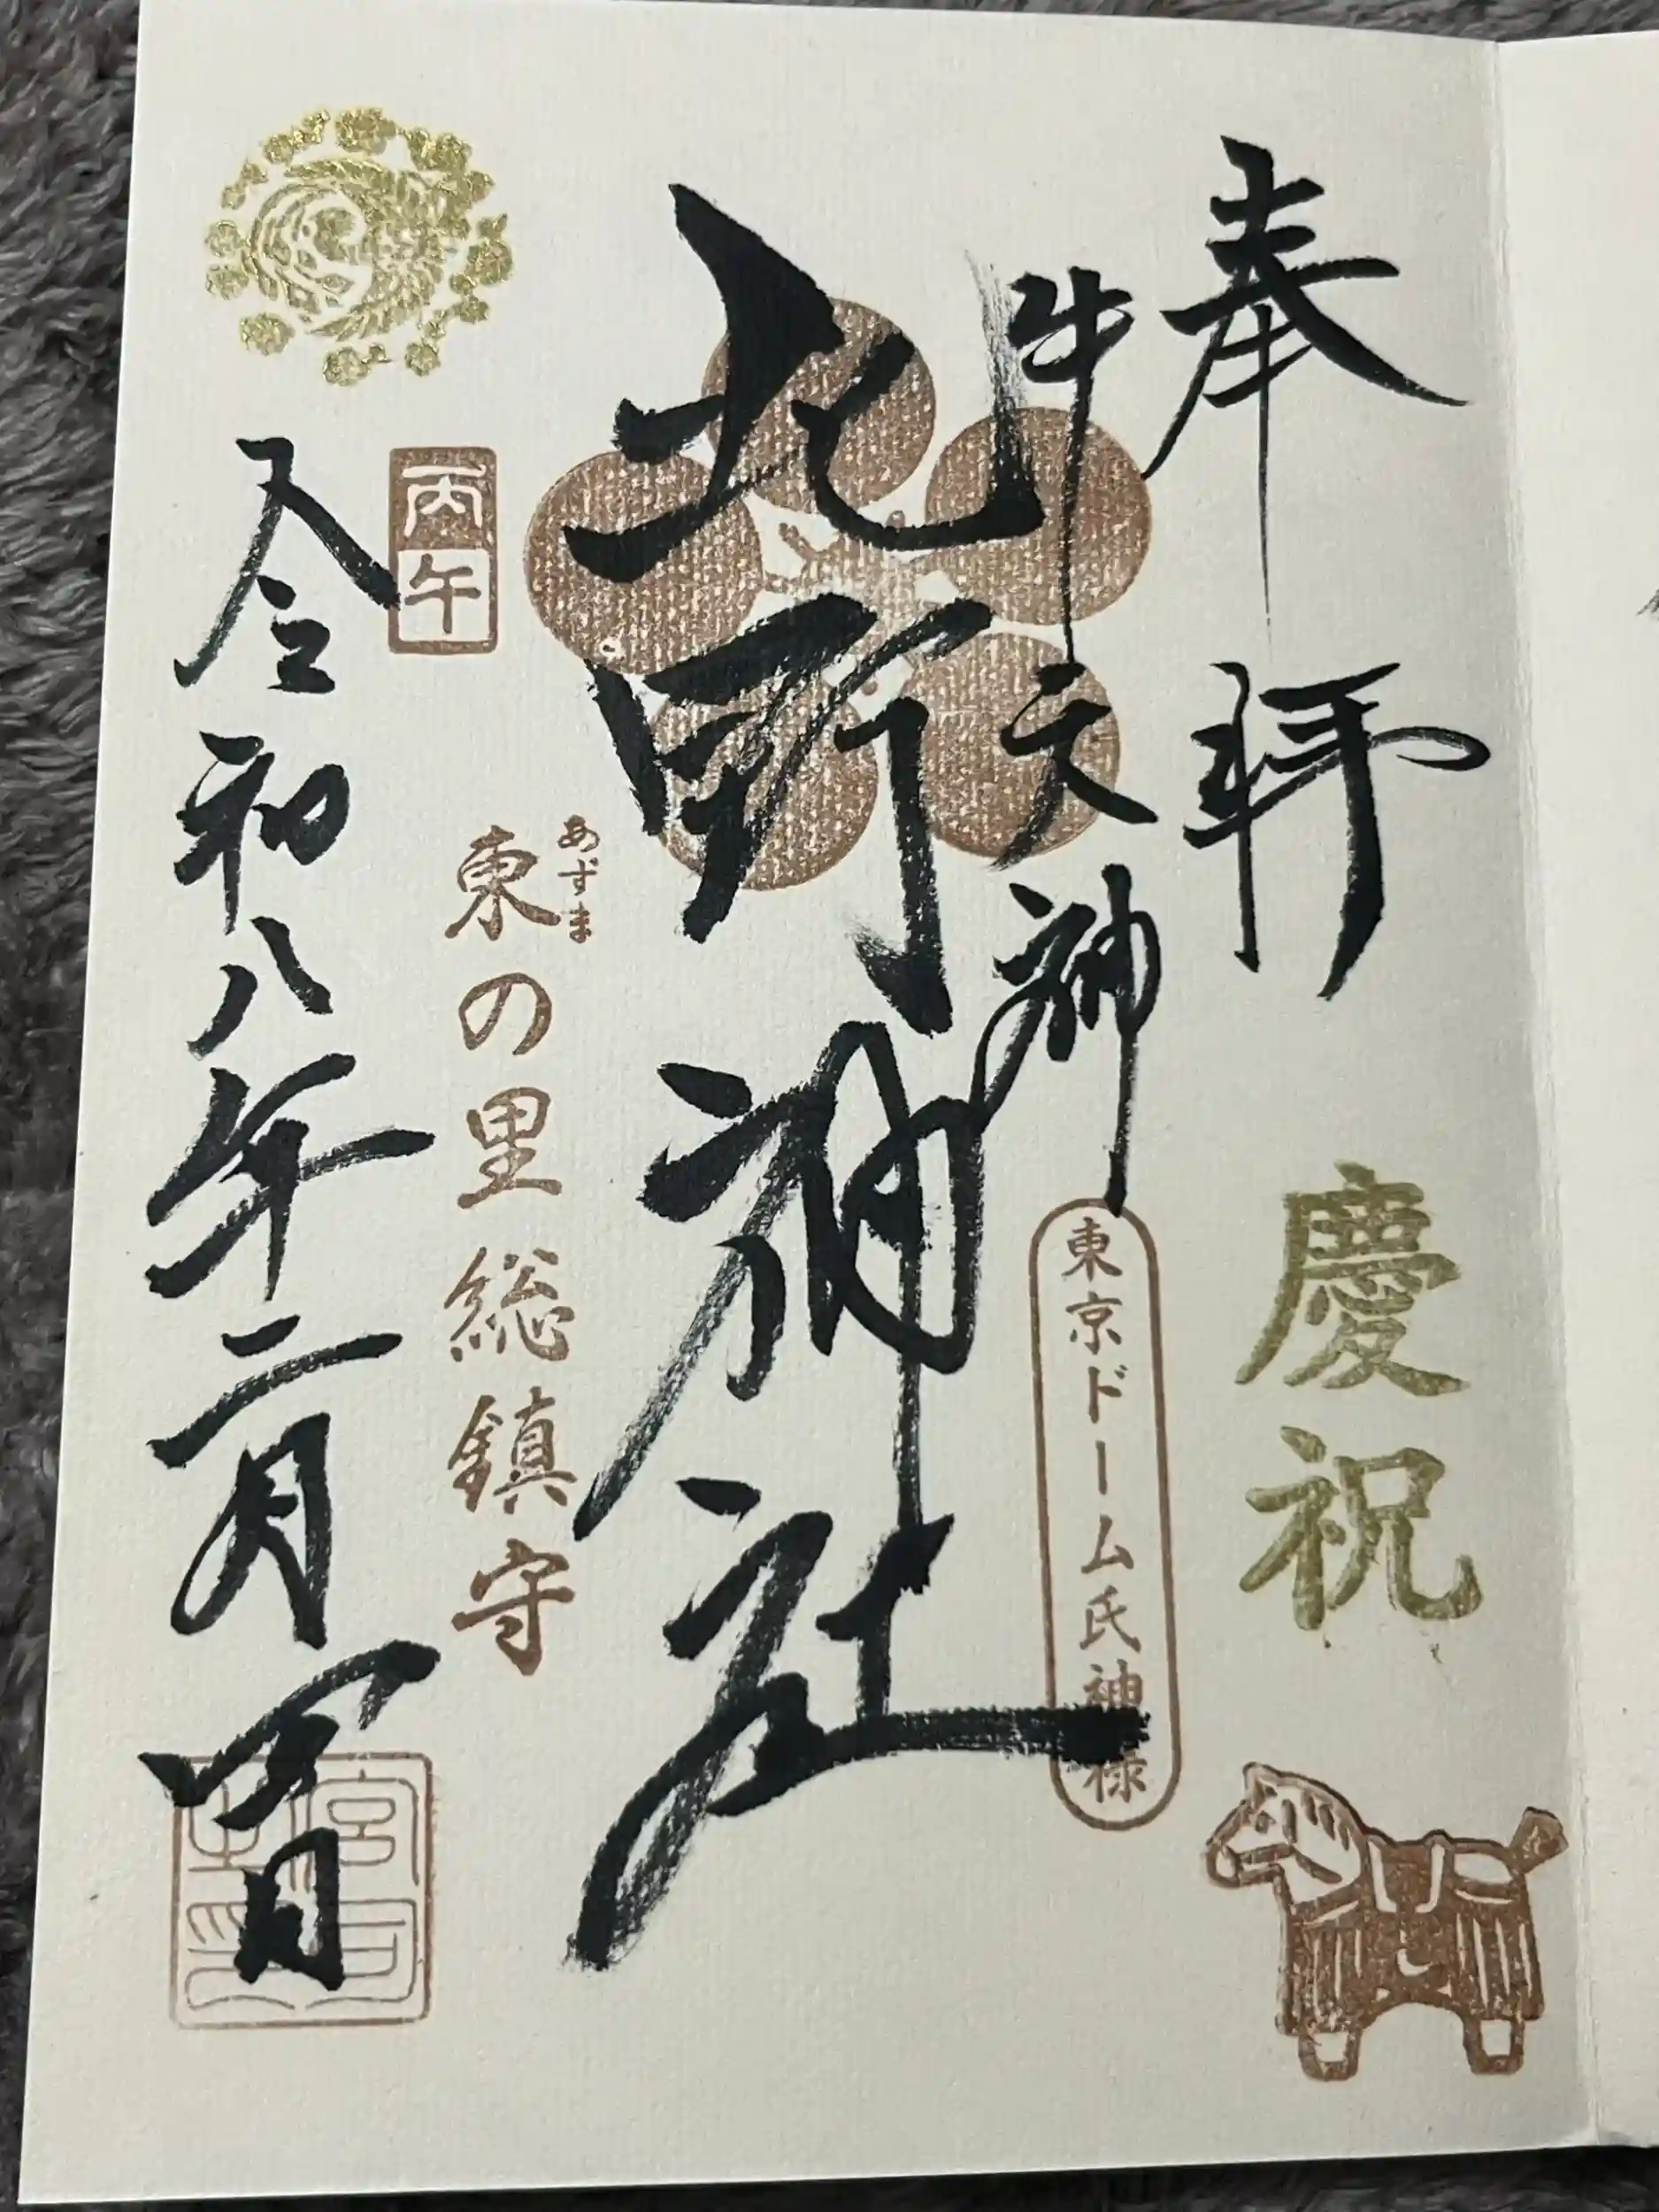 奉拝
慶祝
牛天神
東京ドーム氏神様
北野神社
あずま
東の里総鎮守
丙午
令和八年二月四日
宮司之印